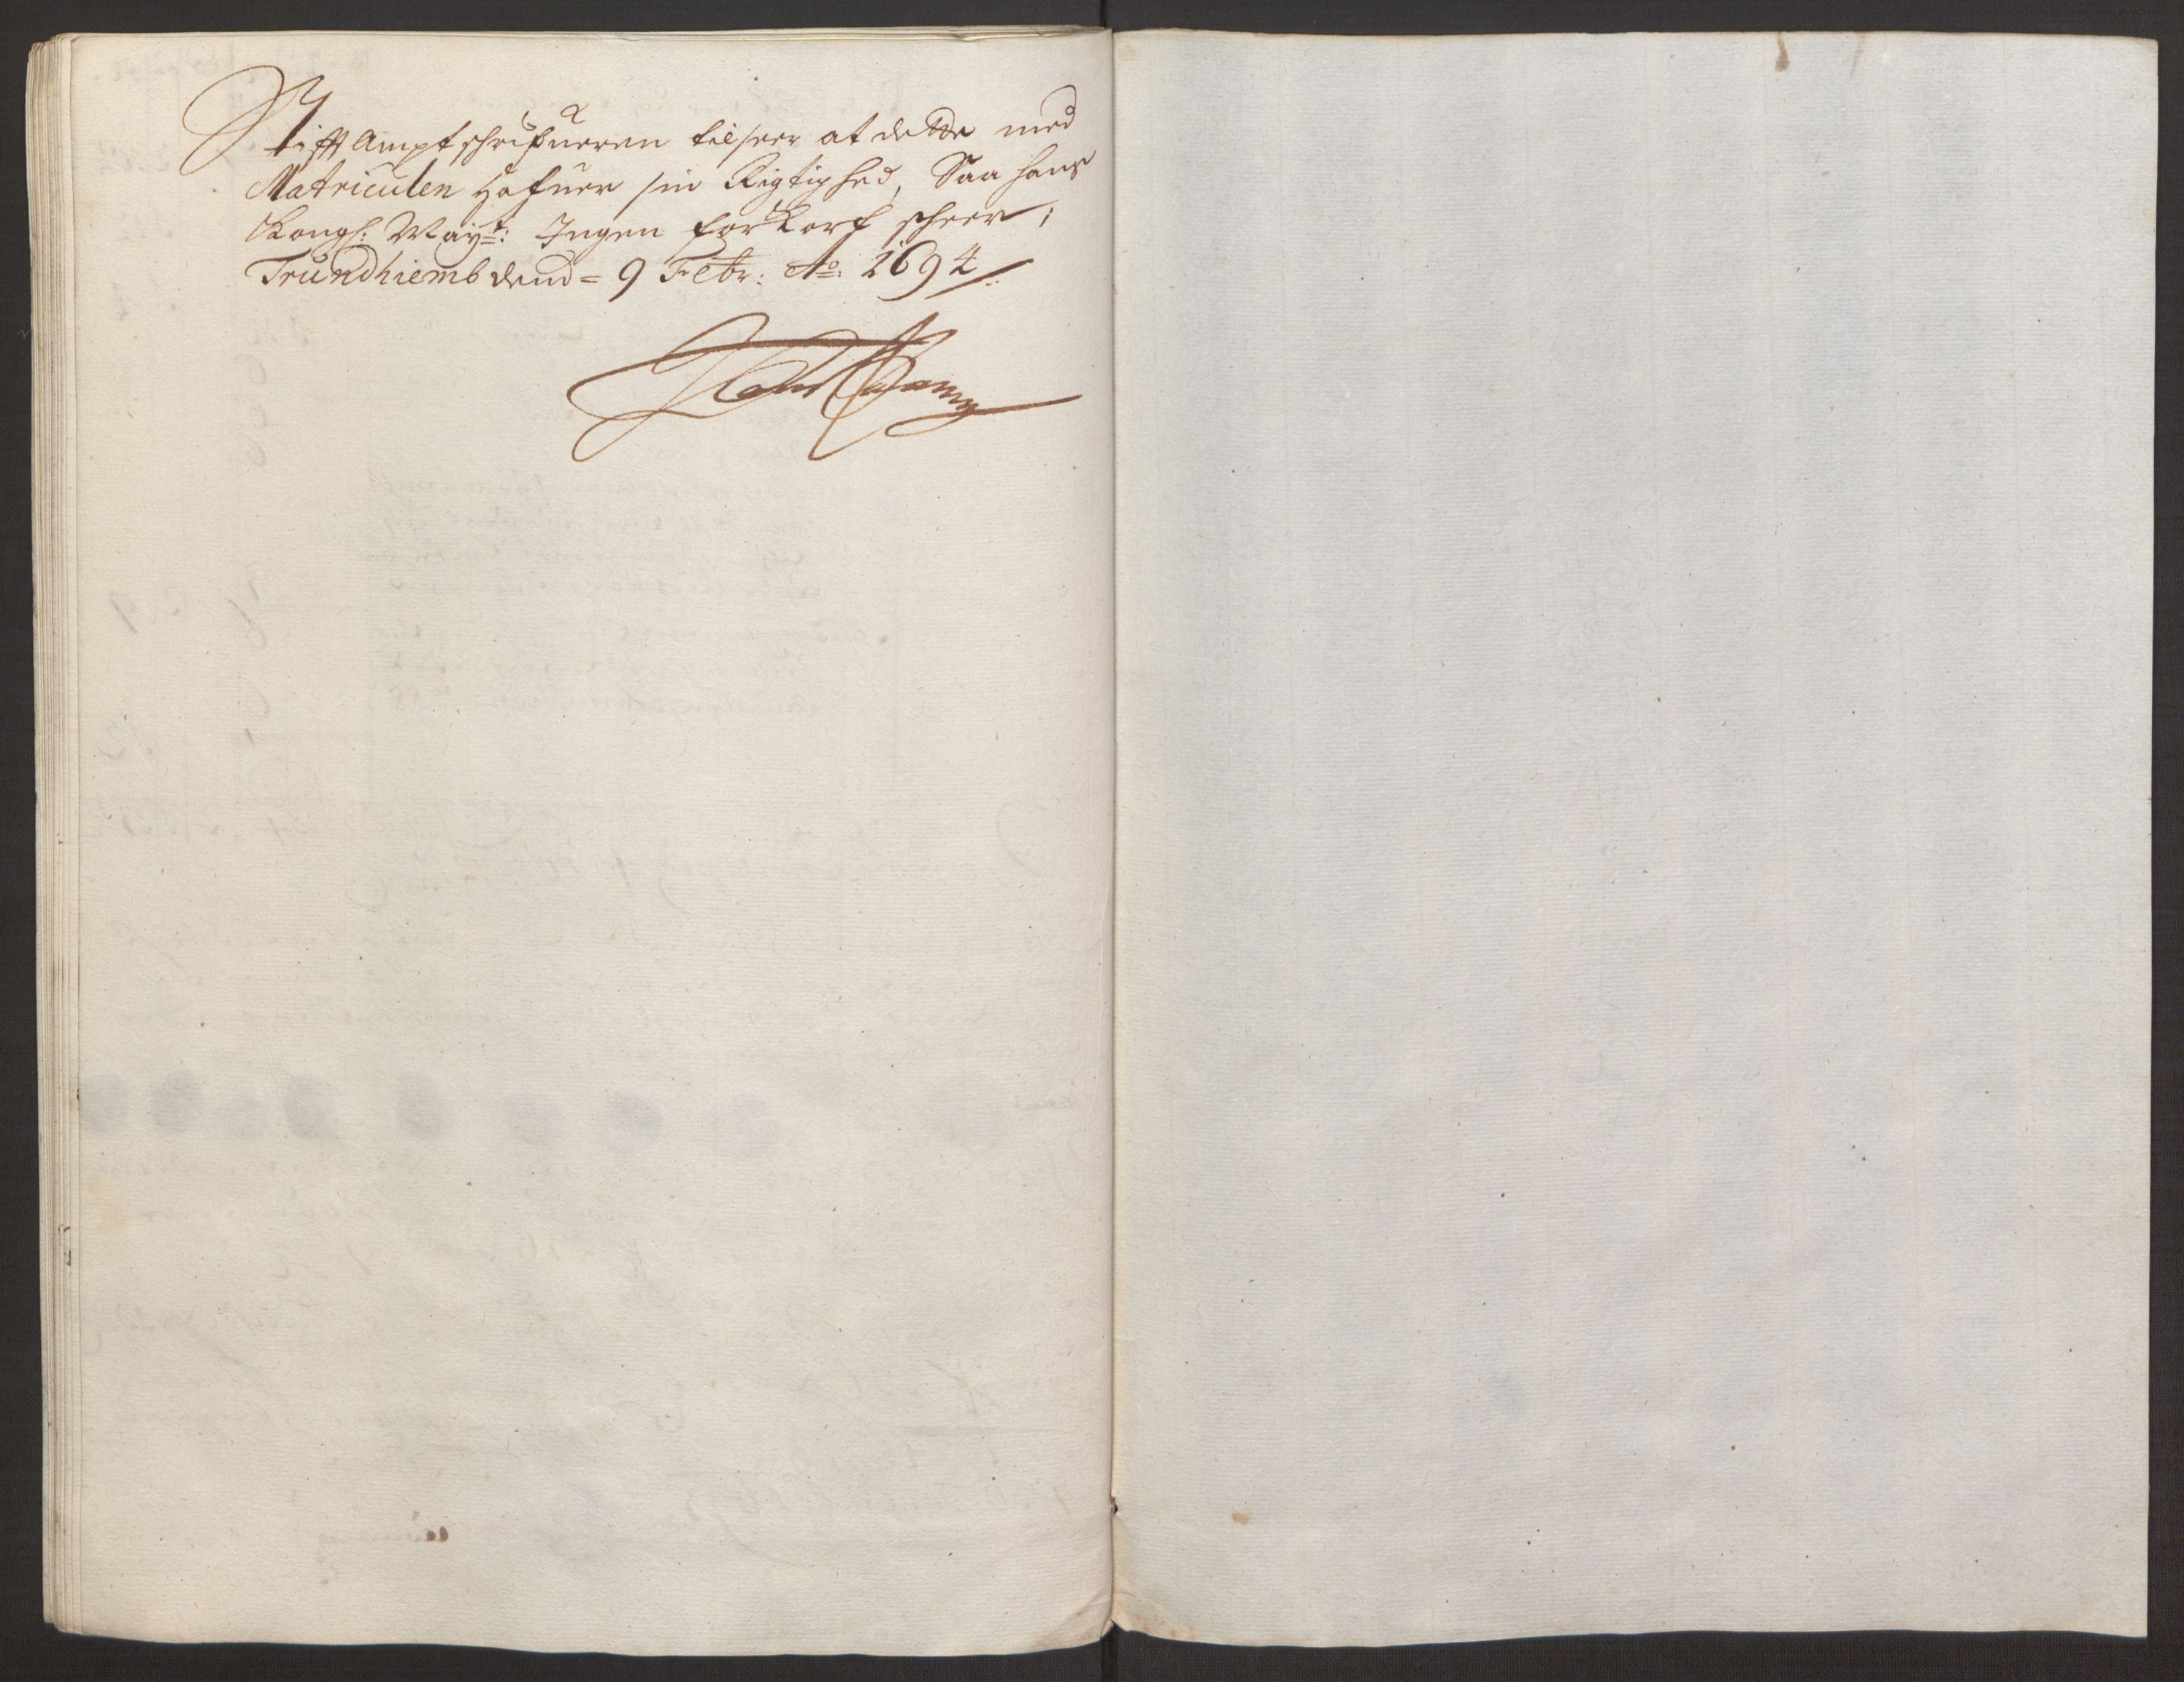 Stifft Ampt schrifueren tilseer at dette med
Matriculen hafuer sin Rigtighed, Saa hans
Kongl: May:t: Ingen forkort scheer;
Trundhiemb dend = 9 Febr: A:o: 1694 /: